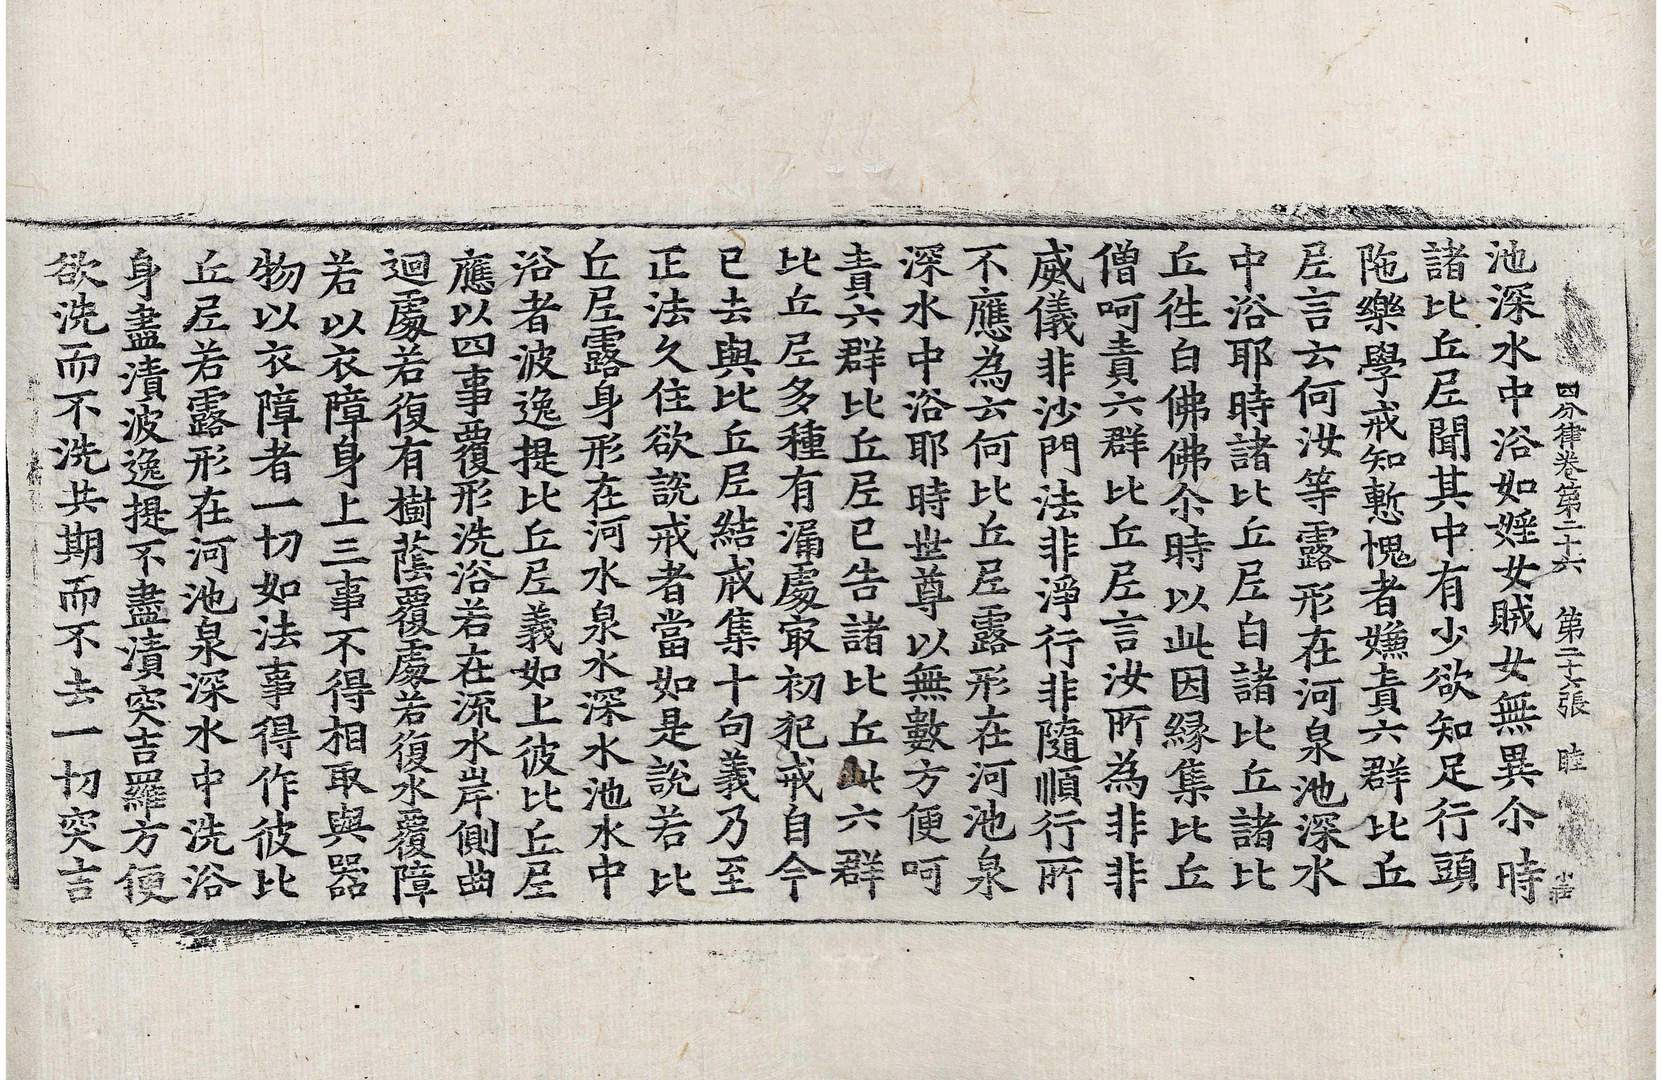 四分律卷第二十六 第二十七張 睦
池深水中浴如婬女賊女無異尒時
諸比丘尼聞其中有少欲知足行頭
陁樂學戒知慙愧者嫌責六群比丘
尼言云何汝等露形在河泉池深水
中浴耶時諸比丘尼白諸比丘諸比
丘徃白佛佛尒時以此因縁集比丘
僧呵責六群比丘尼言汝所為非非
威儀非沙門法非淨行非隨順行所
不應為云何比丘尼露形在河池泉
深水中浴耶時世尊以無數方便呵
責六群比丘尼已告諸比丘此六群
比丘尼多種有漏處㝡初犯戒自今
已去與比丘尼結戒集十句義乃至
正法久住欲說戒者當如是說若比
丘尼露身形在河水泉水深水池水中
浴者波逸提比丘尼義如上彼比丘尼
應以四事覆形洗浴若在源水岸側曲
迴處若復有樹蔭覆處若復水覆障
若以衣障身上三事不得相取與器
物以衣障者一切如法事得作彼比
丘尼若露形在河池泉深水中洗浴
身盡漬波逸提不盡漬突吉羅方便
欲洗而不洗共期而不去一切突吉